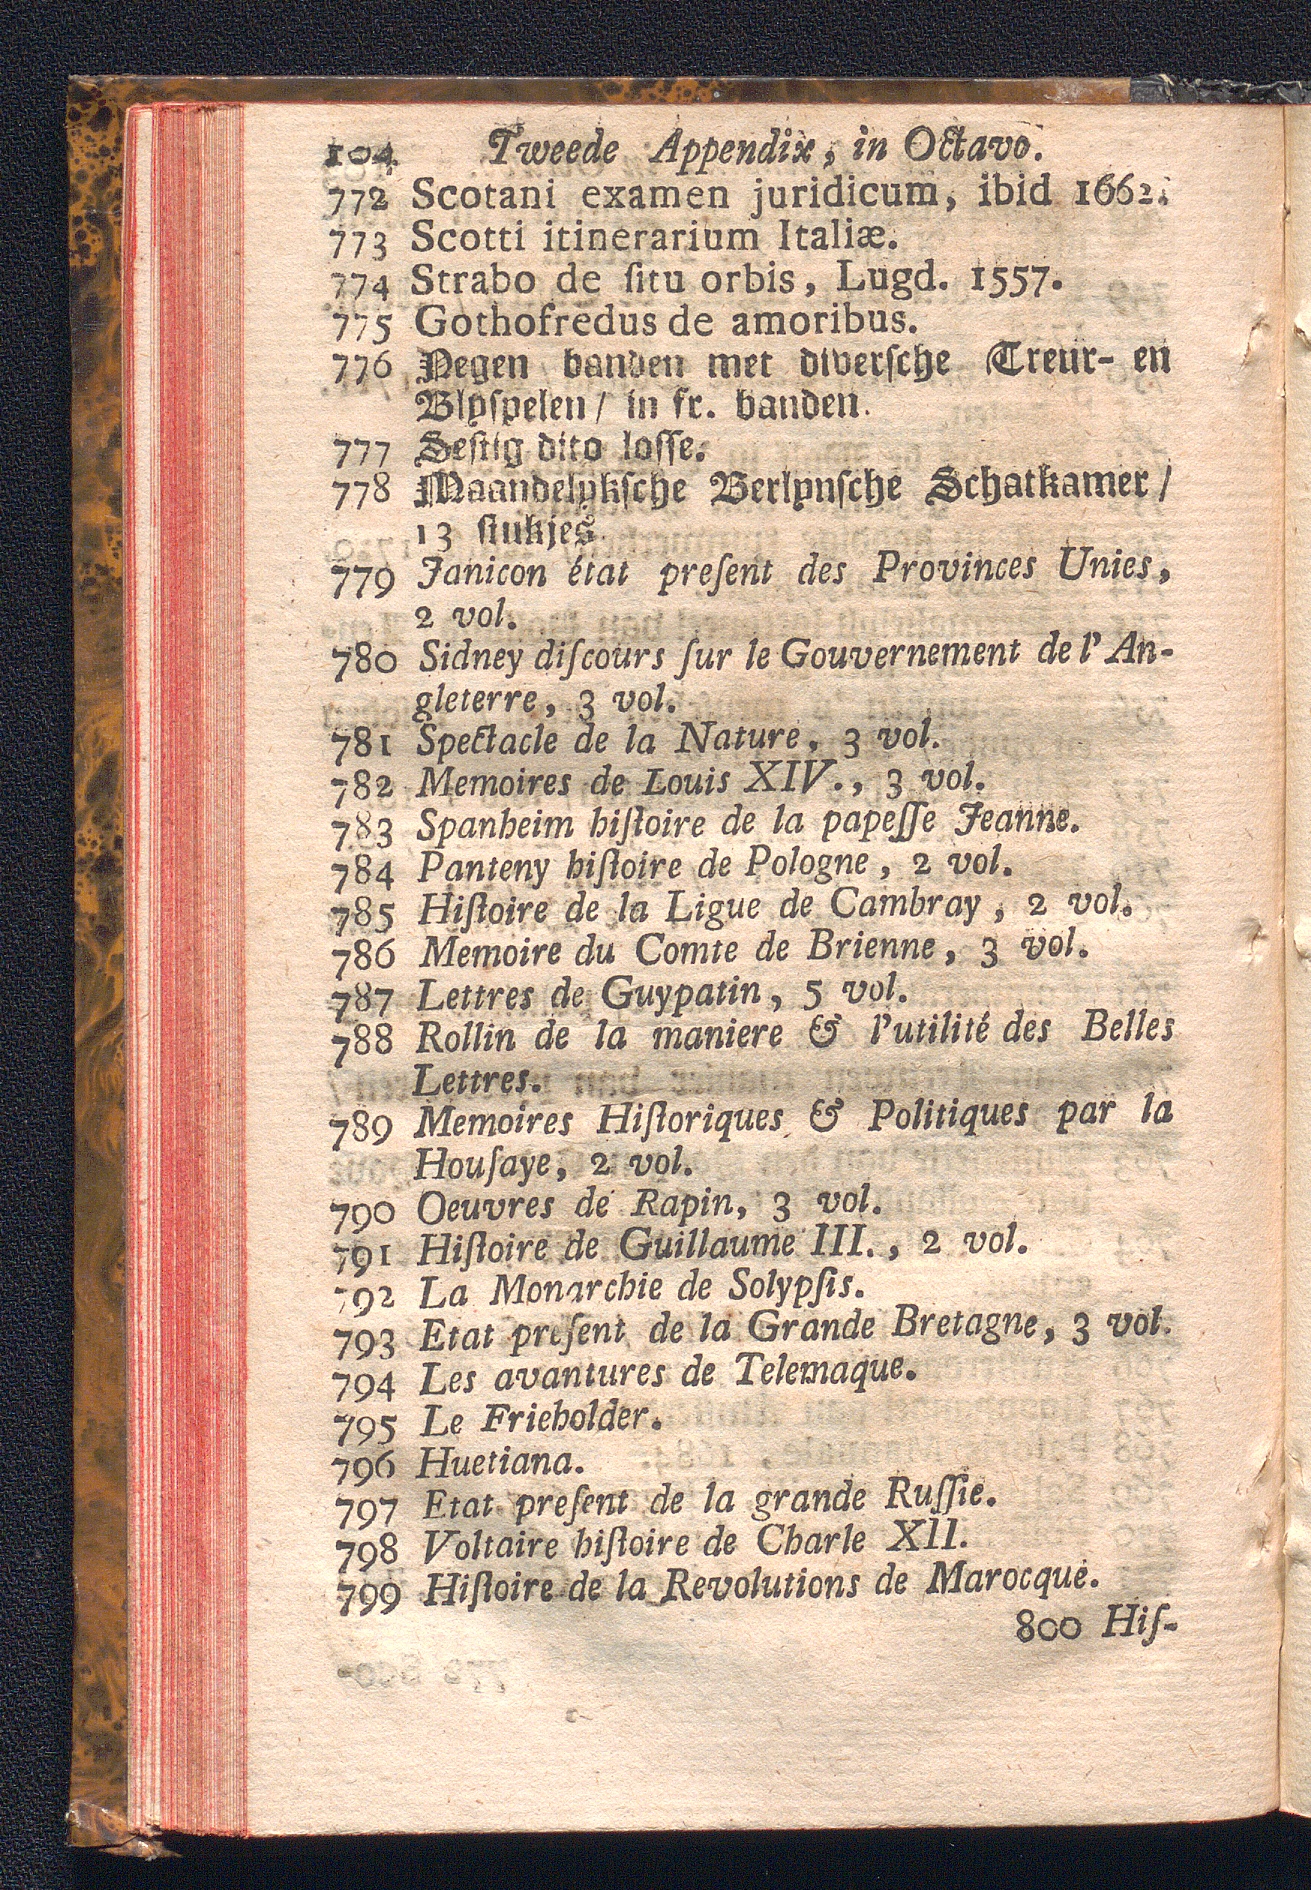 104 Tweede Appendix, in Octavo.
772 Scotani examen juridicum, ibid 1662.
773 Scotti itinerarium Italiæ.
774 Strabo de ſitu orbis, Lugd. 1557.
775 Gothofredus de amoribus.
776 Negen banden met diverſche Treur- en
Blyſpelen / in fr. banden.
777 Seſtig dito loſſe.
778 Maandelykſche Berlynſche Schatkamer /
13 ſtukjes.
779 Janicon état preſent des Provinces Unies,
2 vol.
780 Sidney diſcours ſur le Gouvernement de l'An-
gleterre, 3 vol.
781 Spectacle de la Nature, 3 vol.
782 Memoires de Louis XIV., 3 vol.
783 Spanheim hiſtoire de la papeſſe Jeanne.
784 Panteny hiſtoire de Pologne, 2 vol.
785 Hiſtoire de la Ligue de Cambray, 2 vol.
786 Memoire du Comte de Brienne, 3 vol.
787 Lettres de Guypatin, 5 vol.
788 Rollin de la maniere & l'utilité des Belles
Lettres.
789 Memoires Hiſtoriques & Politiques par la
Houſaye, 2 vol.
790 Oeuvres de Rapin, 3 vol.
791 Hiſtoire de Guillaume III., 2 vol.
792 La Monarchie de Solypſis.
793 Etat preſent de la Grande Bretagne, 3 vol.
794 Les avantures de Telemaque.
795 Le Frieholder.
796 Huetiana.
797 Etat preſent de la grande Ruſſie.
798 Voltaire hiſtoire de Charle XII.
799 Hiſtoire de la Revolutions de Marocque.
800 Hiſ-